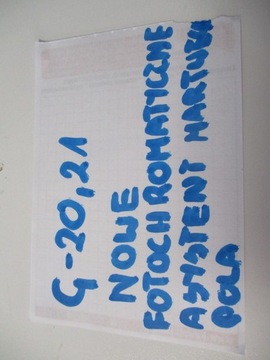 G-20,21
NOWE
FOTOCHROMATYCZNE
ASYSTENT MARTWEGO
POLA